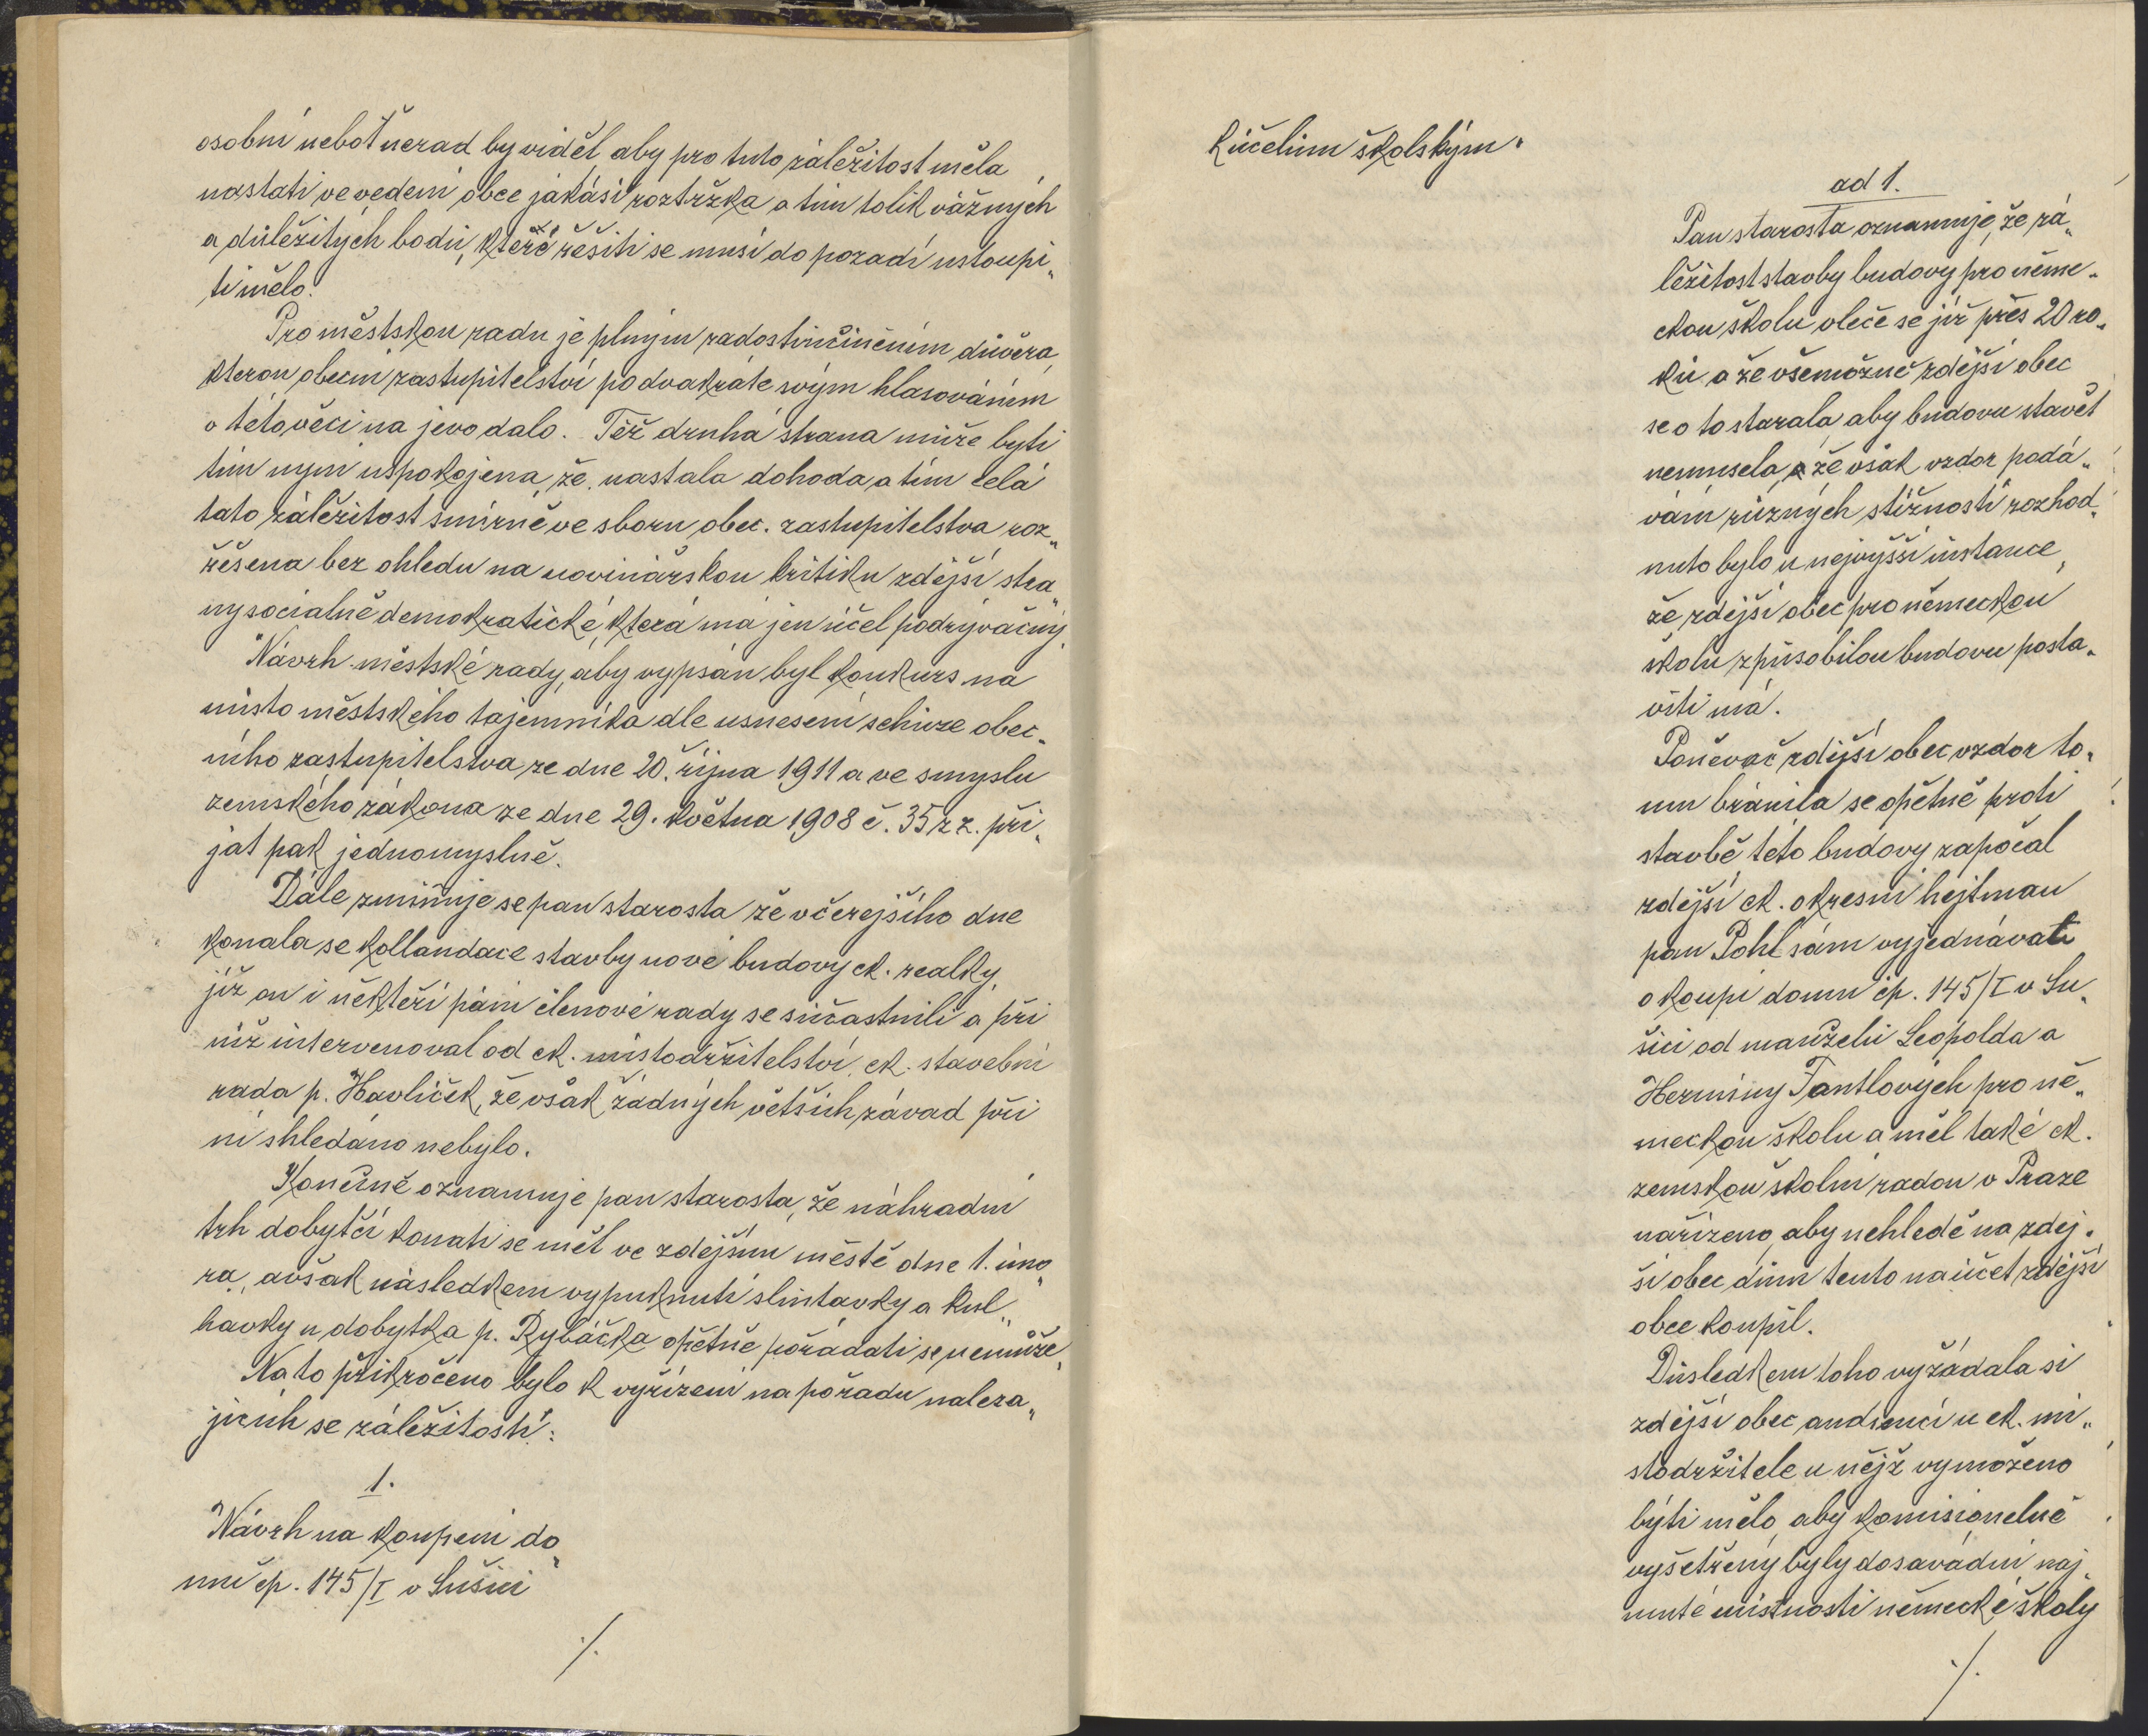 osobní neboť nerad by viděl aby pro tuto záležitost měla
nastati ve vedení obce jakási roztržka a tím tolik vážných
a důležitých bodů, které řešiti se musí do pozadí ustoupi„
ti mělo.
Pro městskou radu je plným zadostiučiněním důvěra,
kterou obecní zastupitelství podvakráte svým hlasováním
o této věci na jevo dalo. Též druhá strana může býti
tím nyní uspokojena, že nastala dohoda a tím celá
tato záležitost smírně ve sboru obec. zastupitelstva roz„
řešena bez ohledu na novinářskou kritiku zdejší stra„
ny sociálně demokratické, která má jen účel podrývačný.
Návrh městské rady, aby vypsán byl konkurs na
místo městského tajemníka dle usnesení schůze obec„
ního zastupitelstva ze dne 20. října 1911 a ve smyslu
zemského zákona ze dne 29. května 1908 č. 35 z z. při„
jat pak jednomyslně.
Dále zmiňuje se pan starosta že včerejšího dne
konala se kollaudace stavby nové budovy ck. reálky,
jíž on i někteří páni členové rady se súčastnili a při
níž intervenoval od ck. místodržitelství ck. stavební
rada p. Havlíček, že však žádných větších závad při
ní shledáno nebylo.
Konečně oznamuje pan starosta, že náhradní
trh dobytčí konati se měl ve zdejším městě dne 1. úno„
ra, avšak následkem vypuknutí slintavky a kul„
havky u dobytka p. Rybáčka opětně pořádati se nemůže.
Na to přikročeno bylo k vyřízení na pořadu naleza„
jících se záležitostí:
1.
Návrh na koupení do„
mu čp. 145/I v Sušici
./.
k účelům školským.
ad 1.
Pan starosta oznamuje, že zá„
ležitost stavby budovy pro něme„
ckou školu vleče se již přes 20 ro„
ků a že všemožně zdejší obec
se o to starala, aby budovu stavět
nemusela, že však vzdor podá„
vání různých stížností rozhod„
nuto bylo u nejvyšší instance,
že zdejší obec pro německou
školu způsobilou budovu posta„
viti má.
Poněvač zdejší obec vzdor to„
mu bránila se opětně proti
stavbě této budovy započal
zdejší ck. okresní hejtman
pan Pohl sám vyjednávati
o koupi domu čp. 145/I v Su„
šici od manželů Leopolda a
Herminy Fantlových pro ně„
meckou školu a měl také ck.
zemskou školní radou v Praze
nařízeno, aby nehledě na zdej„
ší obec dům tento na účet zdejší
obce koupil.
Důsledkem toho vyžádala si
zdejší obec audienci u ck. mí„
stodržitele u nějž vymoženo
býti mělo, aby komisionelně
vyšetřeny byly dosavadní naj„
muté místnosti německé školy
./.